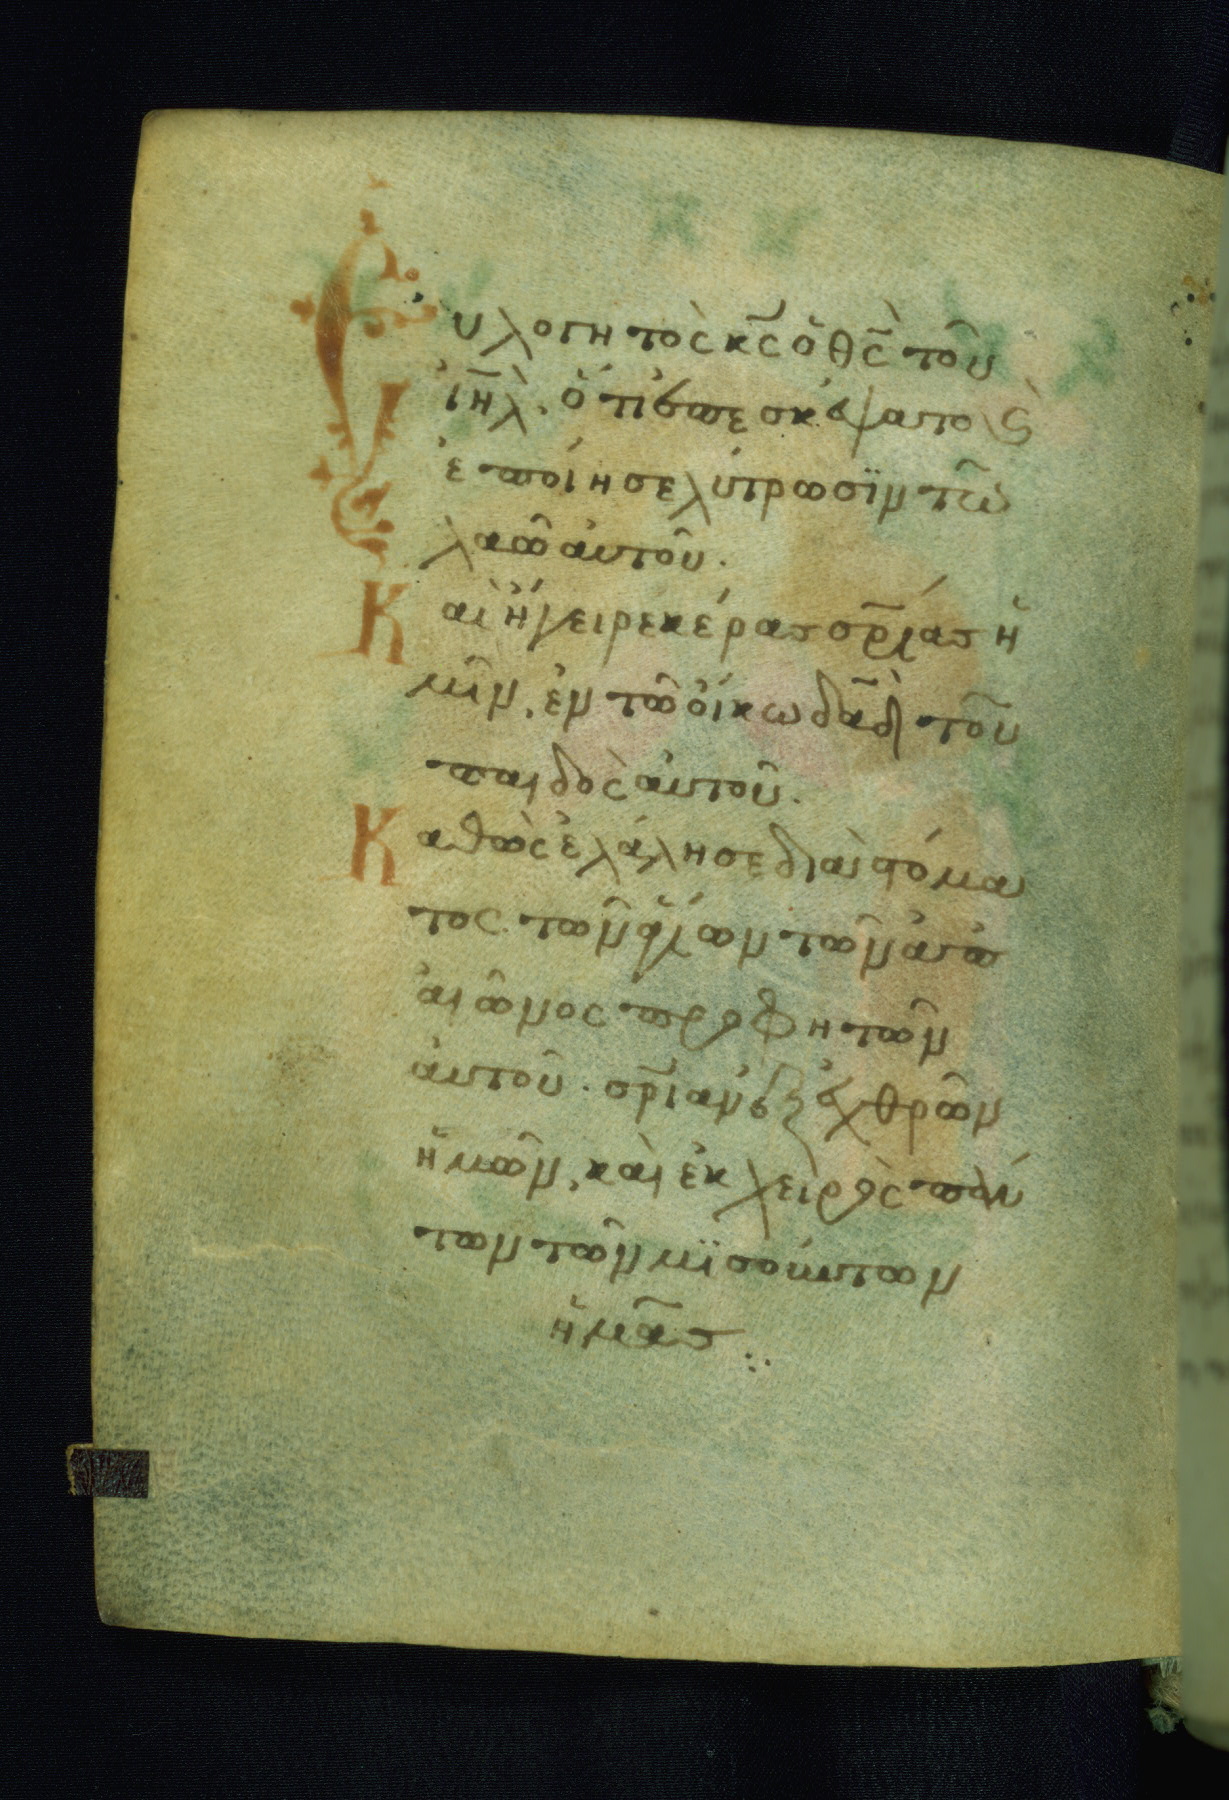 Ἐυλογητὸς κ̅ς̅ ὁ θ̅ς̅ τοῦ
ἰ̅η̅λ̅. ὅτι ἐπεσκέψατο ϛ̀
ἐποίησε λύτρωσϊν τῶ
λαῶ ἀυτοῦ.
Καὶ ἤγειρε κέρας σ̅ρ̅ίας ἡ
μῖν. ἐν τῶ ὄικω δ̅α̅δ̅ τοῦ
παιδὸς ἀυτοῦ.
Καθὼς ἐλάλησε διὰ στόμα
τος τῶν ἁγίων τῶν ἀπ
αἰῶνος προφητῶν
ἀυτοῦ. σ̅ρ̅ίαν ἐξ ἐχθρῶν
ἡμῶν. καὶ ἐκ χειρὸς πάν
των τῶν μϊσούντων
ἡμᾶς